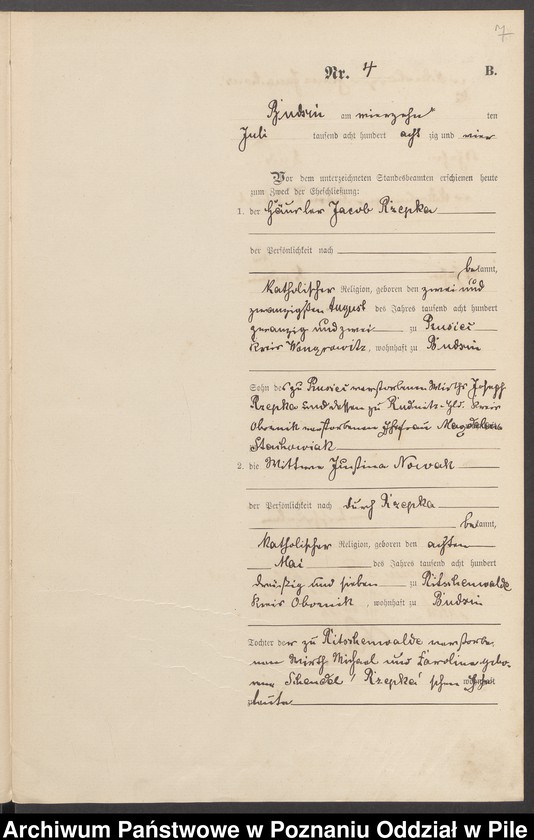 7
Nr. 4 B.
Budsin am vierzehn ten
Juli tausend acht hundert acht zig und vier
Vor dem unterzeichneten Standesbeamten erschienen heute
zum Zweck der Eheschließung:
1. der Häusler Jacob Rzepka
der Persönlichkeit nach
bekannt,
katholischer Religion, geboren den zwei und
zwanzigsten August des Jahres tausend acht hundert
zwanzig und zwei zu Prusiec
Kreis Wongrowitz, wohnhaft zu Budsin
Sohn des zu Prusiec verstorbenen Wirths Joseph
Rzepka und dessen zu Rudnitz-Hld. Kreis
Obornik verstorbenen Ehefrau Magdalena
Stachowiak
2. die Wittwe Justina Nowak
der Persönlichkeit nach durch Rzepka
bekannt,
katholischer Religion, geboren den achten
Mai des Jahres tausend acht hundert
dreißig und sieben zu Ritschenwalde
Kreis Obornik, wohnhaft zu Budsin
Tochter der zu Ritschenwalde verstorbe-
nen Wirth Michael und Caroline gebo-
rene Rzepka'schen Ehe-
leute
Archiwum Państwowe w Poznaniu Oddział w Pile